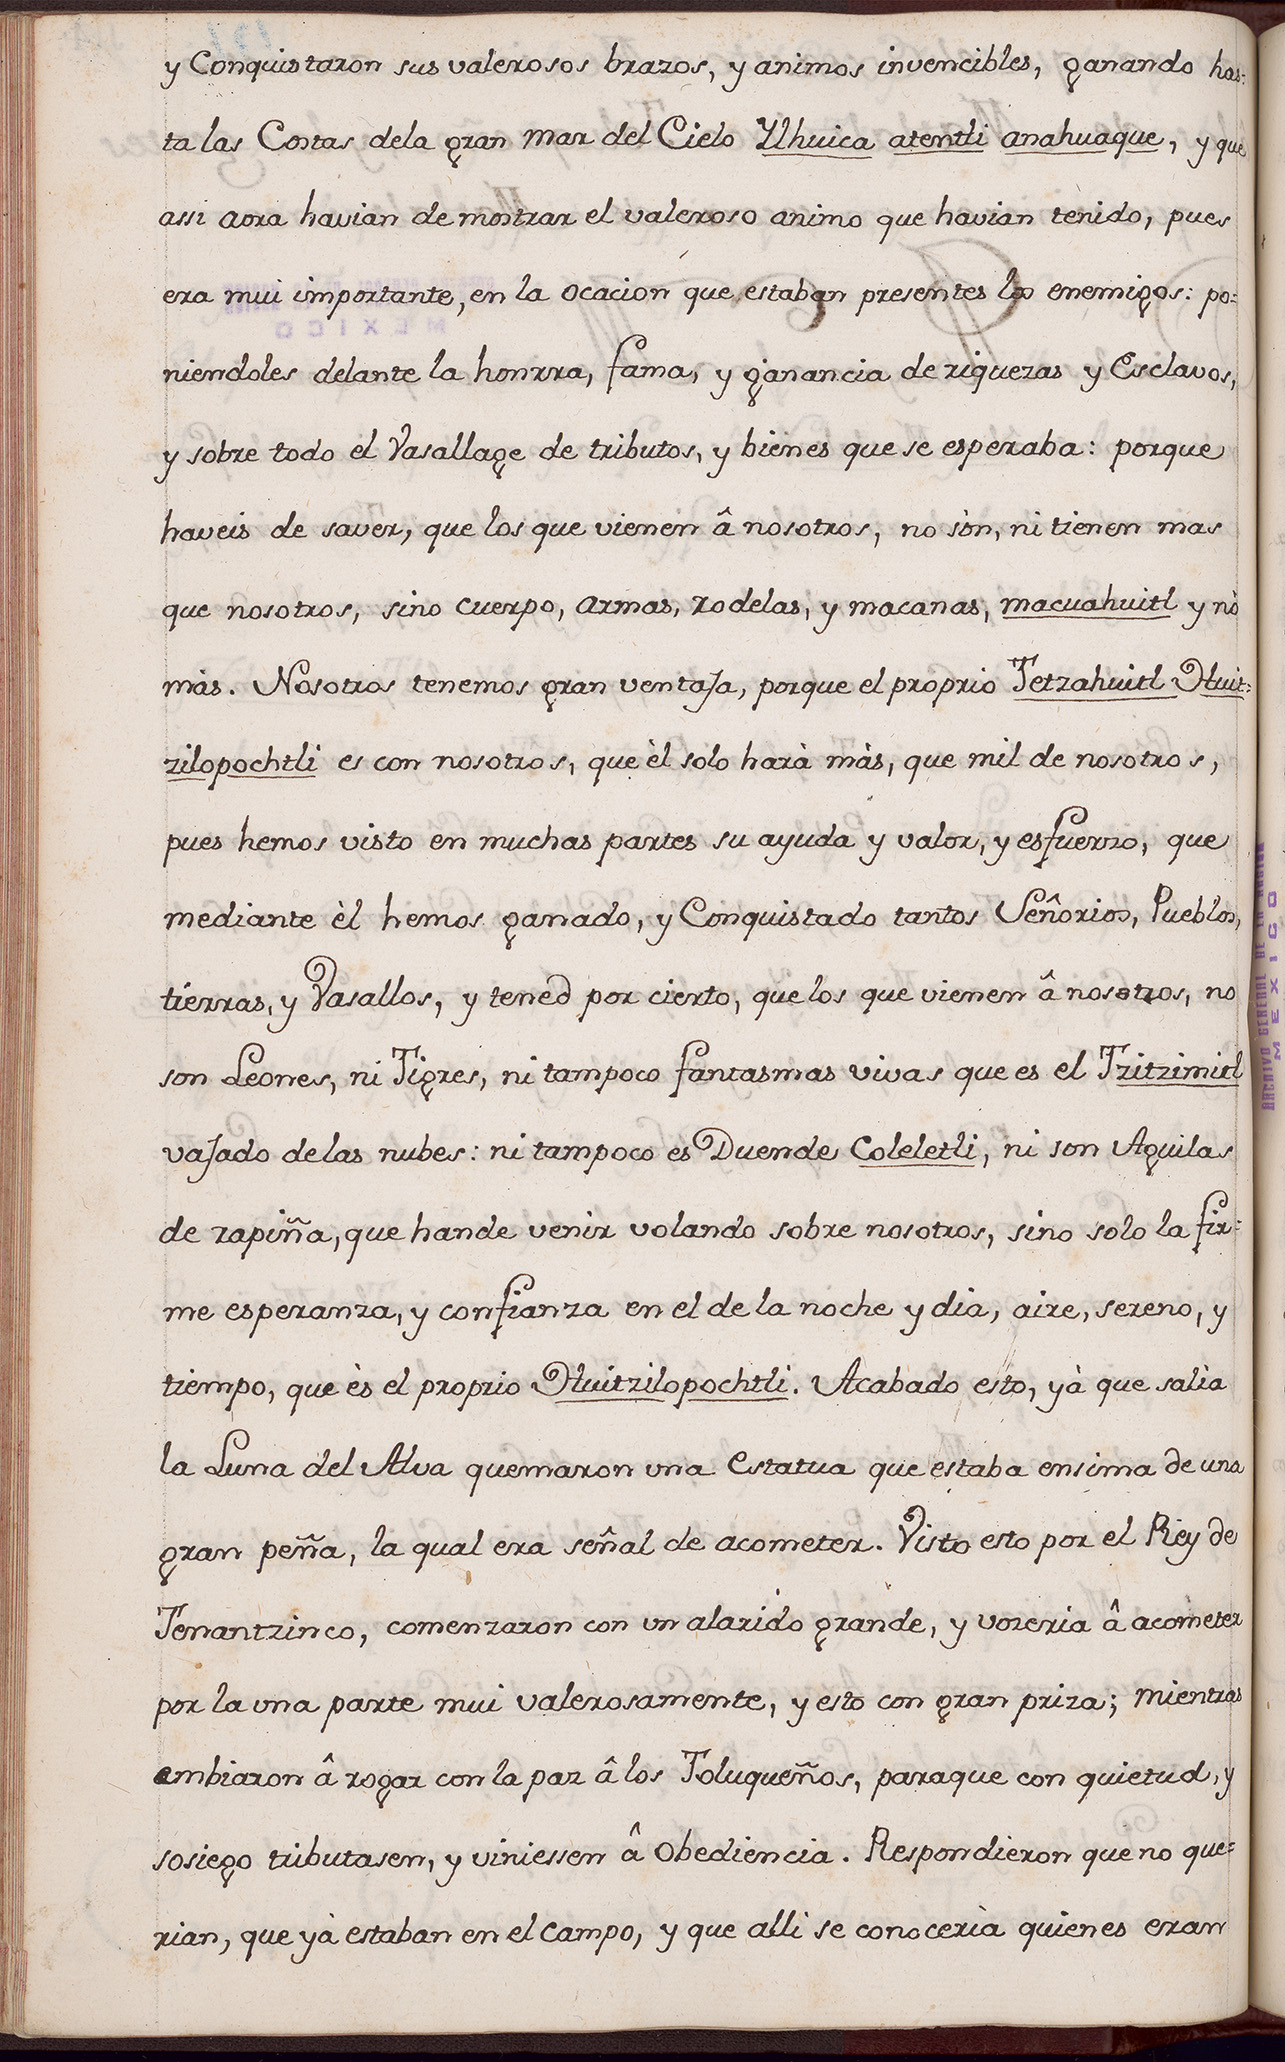 y Conquistaron sus valerosos brazos, y animos invencibles, ganando has=
ta las Costas dela gran mar del Cielo Ylhuica atentli anahuaque, y que
assi aora havian de mostrar el valeroso animo que havian tenido, pues
era mui importante, en la ocacion que estaban presentes los enemigos: po=
niendoles delante la honrra, fama, y ganancia de riquezas y Esclavos,
y sobre todo el Vasallage de tributos, y bienes que se esperaba: porque
haveis de saver, que los que vienen â nosotros, no sòn, ni tienen mas
que nosotros, sino cuerpo, armas, rodelas, y macanas, macuahuitl y nò
màs. Nosotros tenemos gran ventaja, porque el proprio Tetzahuitl Huit=
zilopochtli es con nosotros, que èl solo harà màs, que mil de nosotros,
pues hemos visto en muchas partes su ayuda y valor, y esfuerzo, que
mediante èl hemos ganado, y Conquistado tantos Señorios, Pueblos,
tierras, y Vasallos, y tened por cierto, que los que vienen â nosotros, no
son Leones, ni Tigres, ni tampoco fantasmas vivas que es el Tzitzimitl
vajado delas nubes: ni tampoco es Duende Coleletli, ni son Aguilas
de rapiña, que hande venir volando sobre nosotros, sino solo la fir=
me esperanza, y confianza en el de la noche y dia, aire, sereno, y
tiempo, que ès el proprio Huitzilopochtli. Acabado esto, yà que salia
la Luna del Alva quemaron una Estatua que estaba ensima de una
gran peña, la qual era señal de acometer. Visto esto por el Rey de
Tenantzinco, comenzaron con un alarido grande, y vozeria â acometer
por la una parte mui valerosamente, y esto con gran priza; mientras
embiaron â rogar con la paz â los Toluqueños, paraque con quietud, y
sosiego tributasen, y viniessen â Obediencia. Respondieron que no que=
rian, que yà estaban en el campo, y que alli se conoceria quienes eran
ARCHIVO GENERAL DE LA NACION
MEXICO